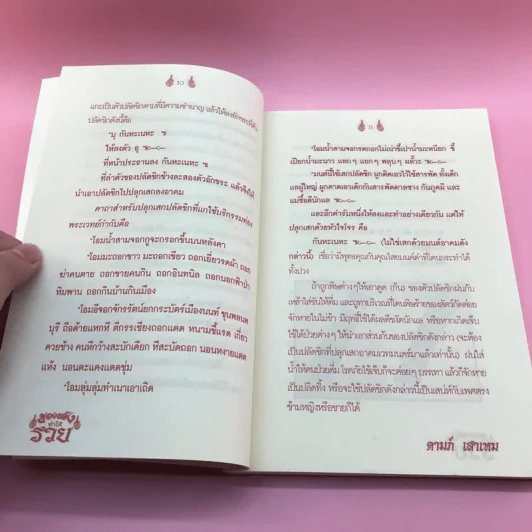 ๑๐
แกะเป็นตัวปลัดขิกตามที่มีความชำนาญ แล้วให้ลงอักขระที่ตัว
ปลัดขิกดังนี้คือ
"นุ กันหะเนหะ
ให้ลงตัว อุ
ที่หน้าประธานลง กันหะเนหะ
ที่ลำของปลัดขิกข้างละสองตัวอักขระ แล้วจึงได้
นำเอาปลัดขิกไปปลุกเสกลงอาคม
คาถาสำหรับปลุกเสกปลัดขิกที่แกใช้บริกรรมท่อง
พระเวทย์กำกับคือ
"โอมน้ำสามจอกกูจะกรอกขึ้นบนหลังคา
"โอมมะถอกขาว มะถอกเขียว ถอกเยี่ยวรดผ้า ถอก
ฆ่าคนตาย ถอกขายคนกิน ถอกอินทนิล ถอกนอกฟ้าป่า
หิมพาน ถอกกินบ้านกินเมือง
"โอมอ้จอกจักรรัตน์ยกกระบัตร์เมืองนนท์ ขุนพลอนน
บุรี ถือด้วยแหกหี ตีกรรเชียงถอกแตด หนามขี้แรด เกี่ยว
ควยช้าง คนทีกว้างสะบักเดียก หีสะบัดถอก นอนหงายแตด
แห้ง นอนตะแคงแตดชุ่ม
"โอมลุ่มลุ่มทำเนาเอาเถิด
ของขลัง
ทำให้
รวย
๑๑
"โอมน้ำสามจอกรดถอกไม่เน่าขี้เปาน้ำมะหนียก ขี้
เปียกน้ำมะนาว แหยกๆ แยกๆ พลุบๆ ผลัวะ
"มนต์นี้ใช้เสกปลัดขิก ผูกติดเอวไว้ใช้สารพัด ทั้งเด็ก
แลผู้ใหญ่ ผูกคาดเอวเด็กกันสารพัดตาลซาง กันภูตมี และ
แม่ซื้อดีนักแล
และอีกตำรับหนึ่งให้ลงและทำอย่างเดียวกัน แต่ให้
ปลุกเสกด้วยหัวใจโจร คือ
กันหะเนหะ (ไม่ใช่เสกด้วยมนต์อาคมดัง
กล่าวนี้) เชื่อว่ามีพุทธคุณกันคุณไสยมนต์ดำที่โดนกระทำได้
ทั้งปวง
ถ้าถูกพิษต่างๆให้เอาดูด (ก้น) ของตัวปลัดขิกฝนกับ
เหล้าใส่ขันให้ดื่ม และถูทาบริเวณที่โดนพิษร้ายของสัตว์กัดต่อย
จักหายในไม่ช้า มีฤทธิ์ใช้ได้ผลดีชะงัดนักแล หรือหากเกิดเจ็บ
ไข้ได้ป่วยต่างๆ ให้นำเอาส่วนก้นของปลัดขิกดังกล่าว (จะต้อง
เป็นปลัดขิกที่ปลุกเสกอาคมเวทมนตร์มาแล้วเท่านั้น) ฝนใส่
น้ำให้คนป่วยดื่ม โรคภัยไข้เจ็บก็จะค่อยๆ บรรเทา แล้วก็จักหาย
เป็นปลิดทิ้ง หรือจะใช้ปลัดขิกดังกล่าวนี้เป็นเสน่ห์กับเพศตรง
ข้ามหญิงหรือชายก็ได้
ดามภ์ เสาเทม